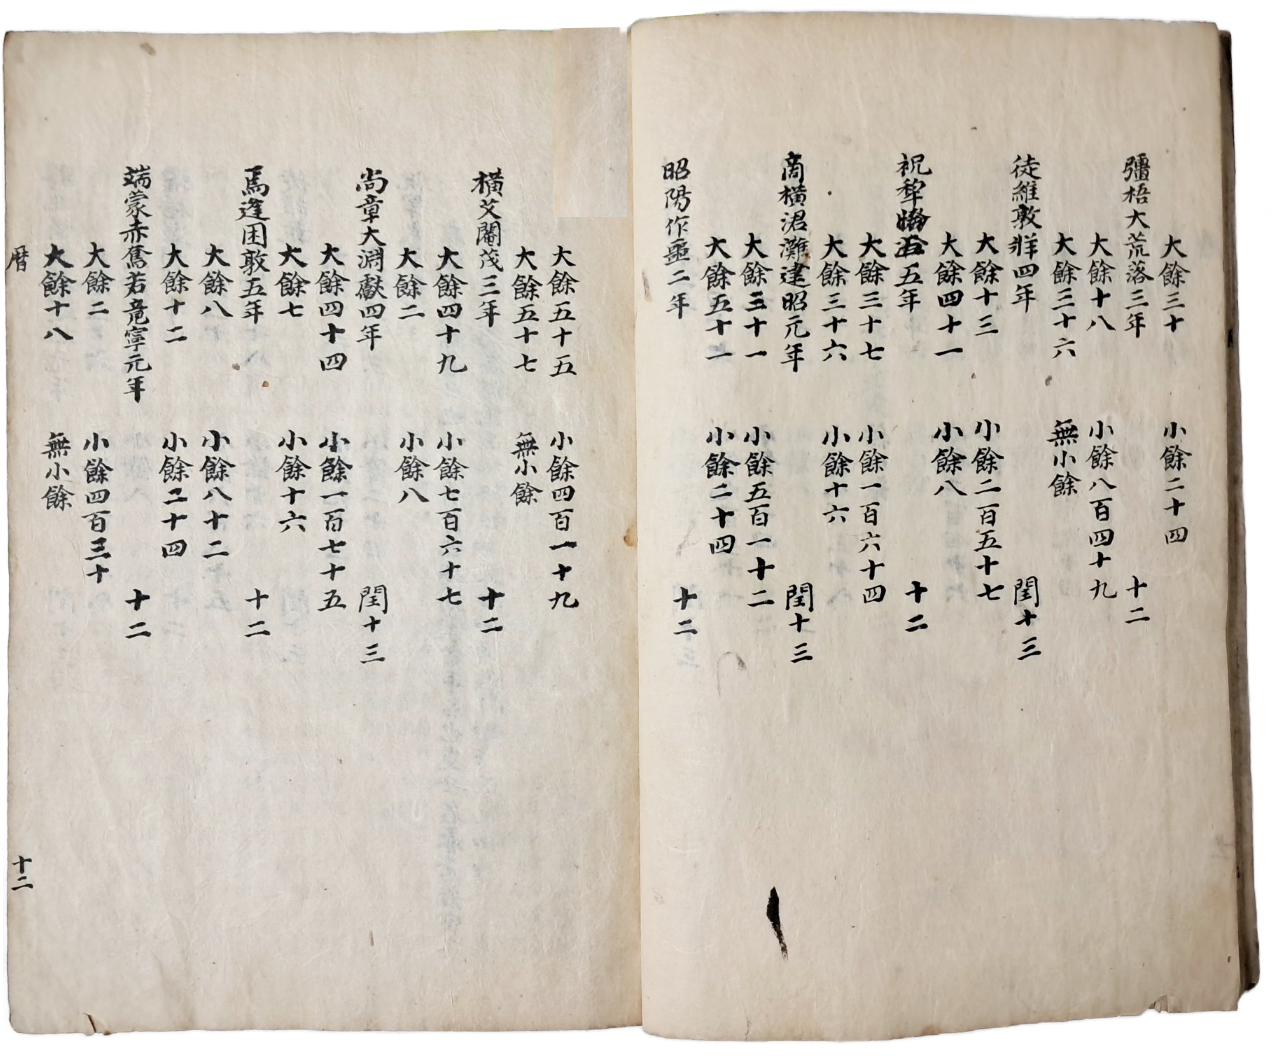 大餘三十 小餘二十四
彊梧大荒落三年 十二
大餘十八 小餘八百四十九
大餘三十六 無小餘
徒維敦牂四年 閏十三
大餘十三 小餘二百五十七
大餘四十一 小餘八
祝犂五年 十二
大餘三十七 小餘一百六十四
大餘三十六 小餘十六
商橫涒灘建昭元年 閏十三
大餘三十一 小餘五百一十二
大餘五十一 小餘二十四
昭陽作噩二年 十二
大餘五十五 小餘四百一十九
大餘五十七 無小餘
橫艾閹茂三年 十二
大餘四十九 小餘七百六十七
大餘二 小餘八
尚章大淵獻四年 閏十三
大餘四十四 小餘一百七十五
大餘七 小餘十六
焉逢困敦五年 十二
大餘八 小餘八十二
大餘十二 小餘二十四
端蒙赤奮若竟寧元年 十二
大餘二 小餘四百三十
大餘十八 無小餘
暦 十二